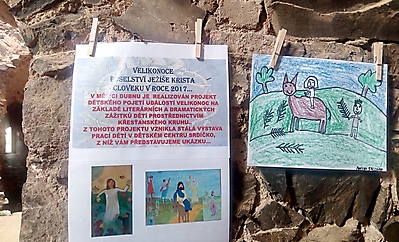 VELIKONOCE
POSELSTVÍ JEŽÍŠE KRISTA
ČLOVĚKU V ROCE 2017...
V MĚSÍCI DUBNU JE REALIZOVÁN PROJEKT
DĚTSKÉHO POJETÍ UDÁLOSTÍ VELIKONOC NA
ZÁKLADĚ LITERÁRNÍCH A DRAMATICKÝCH
ZÁŽITKŮ DĚTÍ PROSTŘEDNICTVÍM
KŘESŤANSKÉHO KRUHU.
Z TOHOTO PROJEKTU VZNIKLA STÁLÁ VÝSTAVA
PRACÍ DĚTÍ V DĚTSKÉM CENTRU SRDÍČKO,
Z NÍŽ VÁM PŘEDSTAVUJEME UKÁZKU...